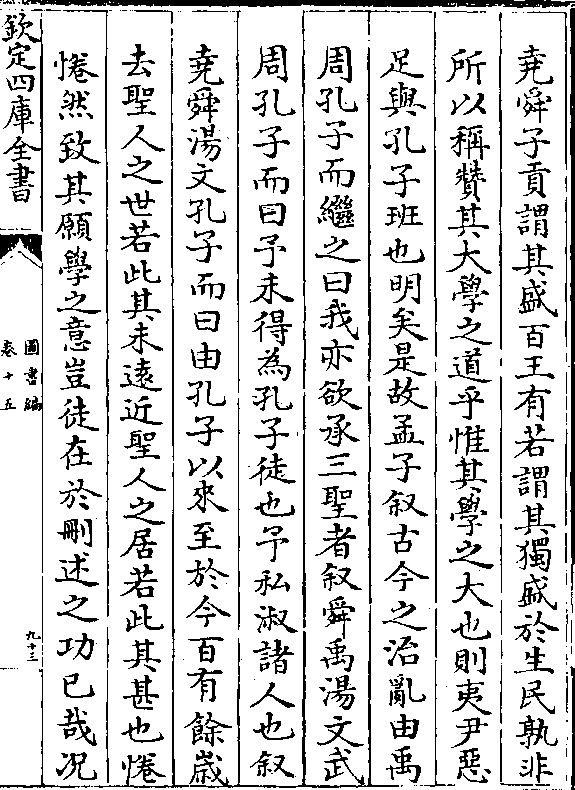 堯舜子貢謂其盛百王有若謂其獨盛於生民孰非
所以稱贊其大學之道乎惟其學之大也則夷尹惡
足與孔子班也明矣是故孟子叙古今之治亂由禹
周孔子而繼之曰我亦欲承三聖者叙舜禹湯文武
周孔子而曰予未得為孔子徒也予私淑諸人也叙
堯舜湯文孔子而曰由孔子以來至於今百有餘歲
去聖人之世若此其未遠近聖人之居若此其甚也惓
惓然致其願學之意豈徒在於刪述之功已哉况
欽定四庫全書
圖書編
卷十五
九十三